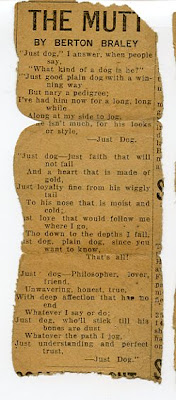 THE MUTT
BY BERTON BRALEY
"Just dog," I answer, when people
say,
"What kind of a dog is he?"
"Just good plain dog with a win-
ning way
But nary a pedigree;
I've had him now for a long, long
while
Along at my side to jog,
He isn't much, for his looks
or style,
Just Dog.
"Just dog—just faith that will
not fail
And a heart that is made of
gold,
Just loyalty fine from his wiggly
tail
To his nose that is moist and
cold;
Just love that would follow me
where I go,
Tho down to the depths I fall,
Just dog, plain dog, since you
want to know,
That's all!
Just dog—Philosopher, lover,
friend,
Unwavering, honest, true,
With deep affection that has no
end
Whatever I say or do;
Just dog, who'll stick till his
bones are dust
Whatever the path I jog,
Just understanding and perfect
trust,
—Just Dog."